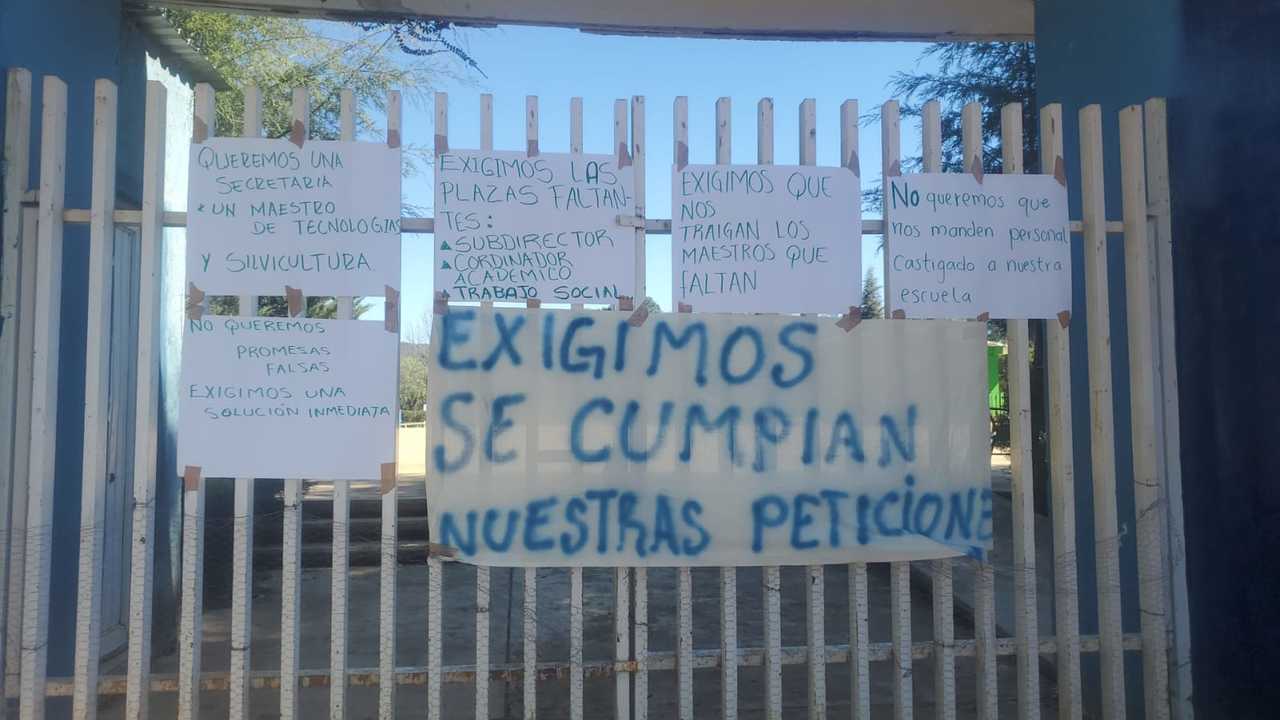 QUEREMOS UNA
SECRETARIA
* UN MAESTRO
DE TECNOLOGIAS
Y SILVICULTURA
EXIGIMOS LAS
PLAZAS FALTAN-
TES:
▲ SUBDIRECTOR
▲ CORDINADOR
ACADEMICO
▲ TRABAJO SOCIAL
EXIGIMOS QUE
NOS
TRAIGAN LOS
MAESTROS QUE
fALTAN
No queremos que
nos manden personal
Castigado a nuestra
escuela
NO QUEREMOS
PROMESAS
FALSAS
EXIGIMOS UNA
SOLUCIÓN INMEDIATA
EXIGIMOS
SE CUMPlAN
NUESTRAS PETICiONE